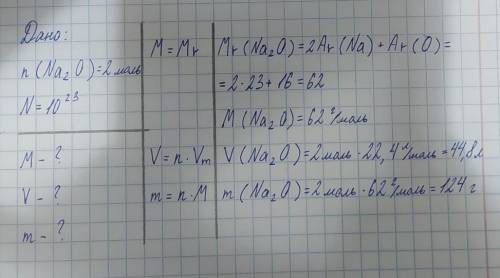 Дано:
n (Na₂O) = 2 моль
N = 10²³
M - ?
V - ?
m - ?
M = Mr
V = n · Vm
m = n · M
Mr (Na₂O) = 2Ar (Na) + Ar (O) =
= 2 · 23 + 16 = 62
M (Na₂O) = 62 г/моль
V (Na₂O) = 2 моль · 22,4 л/моль = 44,8 л
m (Na₂O) = 2 моль · 62 г/моль = 124 г